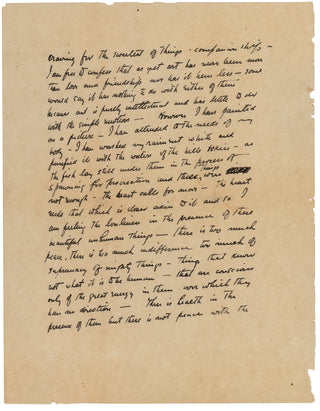 craving for the sweetest of things - companionship -
I am free to confess that as yet art has never been more
than love and friendship nor has it been less - some
would say it has nothing to do with either of them
because art is purely intellectual and has little to do
with the simple emotions - However I have painted
on a picture - I have attended to the needs of my
body - I have washed my raiment white and
purified it with the waters of the hills - as
the fish lay still under them in the process of
spawning for procreation and these things were
not enough - the heart calls for more - The heart
needs that which is closer akin to it and so I
am feeling the loneliness in the presence of these
beautiful unhuman things - there is too much
peace, there is too much indifference too much of
supremacy of mighty things - things that know
not what it is to be human - that are conscious
only of the great energy in them over which they
have no direction - There is health in the
presence of them but there is not peace with the